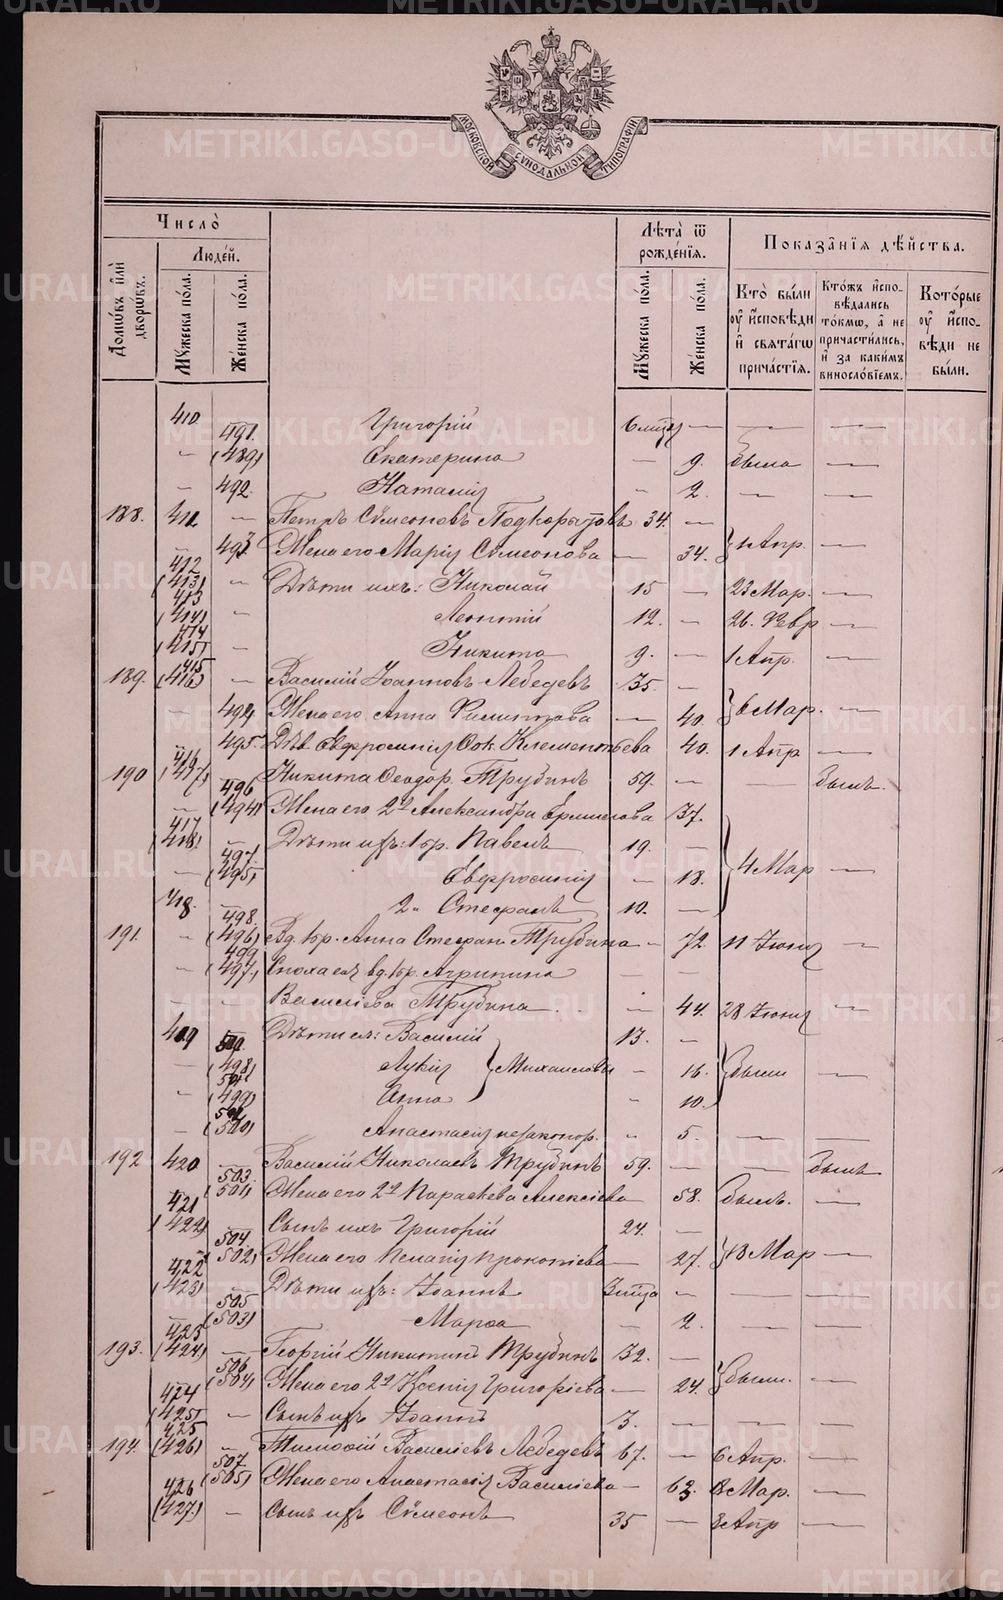 МОСКОВСКОЙ СѴНОДАЛЬНОЙ ТИПОГРАФІИ
Число̀
Людéй.
Домѡвъ и҆лѝ дворѡвъ.
Мꙋ́жеска по́ла.
Же́нска по́ла.
Лѣ́та ѿ рожде́нїѧ.
Мꙋ́жеска по́ла.
Же́нска по́ла.
Показа̑нїѧ дѣ́йства.
Кто̀ бы́ли оу҆ и҆сповѣди и҆ свѧта́гѡ прича́стїѧ.
Кто́жъ и҆спо-вѣдались то́кмѡ, а҆ не причасти́лись, и҆ за каки́мъ винослові́емъ.
Кото́рые оу҆ и҆спо-вѣди не бы́ли.
410. Григорій 6 мцѧ — — —
491. (489) Екатерина — 9. была —
492. Наталія — 2. — —
188. 411 — Петръ Сѵмеоновъ Подкорытовъ 34. —
493 Жена его Марія Сѵмеонова — 34. 1 Апр. —
412 (413) — Дѣти ихъ: Николай 15 — 23 Мар. —
413 (414) — Леонтій 12. — 26. Февр —
414 (415) — Никита 9. — 1 Апр. —
189. 415 (416) — Василій Іоанновъ Лебедевъ 35. —
— 494 Жена его Анна Филиппова — 40. 6 Мар. —
495. Дѣв. Евфросинія Клементьева 40. 1 Апр —
190 416 (417) Никита Ѳеодор. Трубинъ 59. — — былъ.
— 496 (494) Жена его 2ꙵ Александра Ермилова 37.
417 (418) Дѣти ихъ: 1 бр. Павелъ 19. —
— 497. (495) Евфросинія — 18. 4 Мар —
418. — 2ꙵ Стефанъ 10. —
191. — 498. (496) Вд. Анна Стефан. Трубина — 72. 11 Іюня —
— 499 (497) Сноха ея вд. Агрипина — —
— — Василіева Трубина — 44. 28 Іюня —
419 Дѣти ея: Василій 13. —
— 500. (498) Лукія Михаиловы — 16. были —
— 501 (499) Анна — 10.
— 502 (500) Анастасія незаконор. — 5. — — —
192. 420 — Василій Николаевъ Трубинъ 59. — — былъ
503. (501) Жена его 2ꙵ Параскева Алексіева 58. былъ. —
421 (422) — Сынъ ихъ Григорій 24. —
504. (502) Жена его Пелагія Прокопіева — 27. 13 Мар —
422 (423) — Дѣти ихъ: Іоаннъ — — —
505 (503) Марѳа — 2. — —
193. 423 (424) — Георгій Никитинъ Трубинъ 32. —
506 (504) Жена его 2ꙵ Ксенія Григоріева — 24. были. —
424 (425) — Сынъ ихъ Іоаннъ 3. — — —
194. 425 (426) — Тимоѳій Василіевъ Лебедевъ 67. — 6 Апр. —
507. (505) Жена его Анастасія Василіева — 63 8 Мар. —
426 (427.) — Сынъ ихъ Сѵмеонъ 35 — 8 Апр —
METRIKI.GASO-URAL.RU